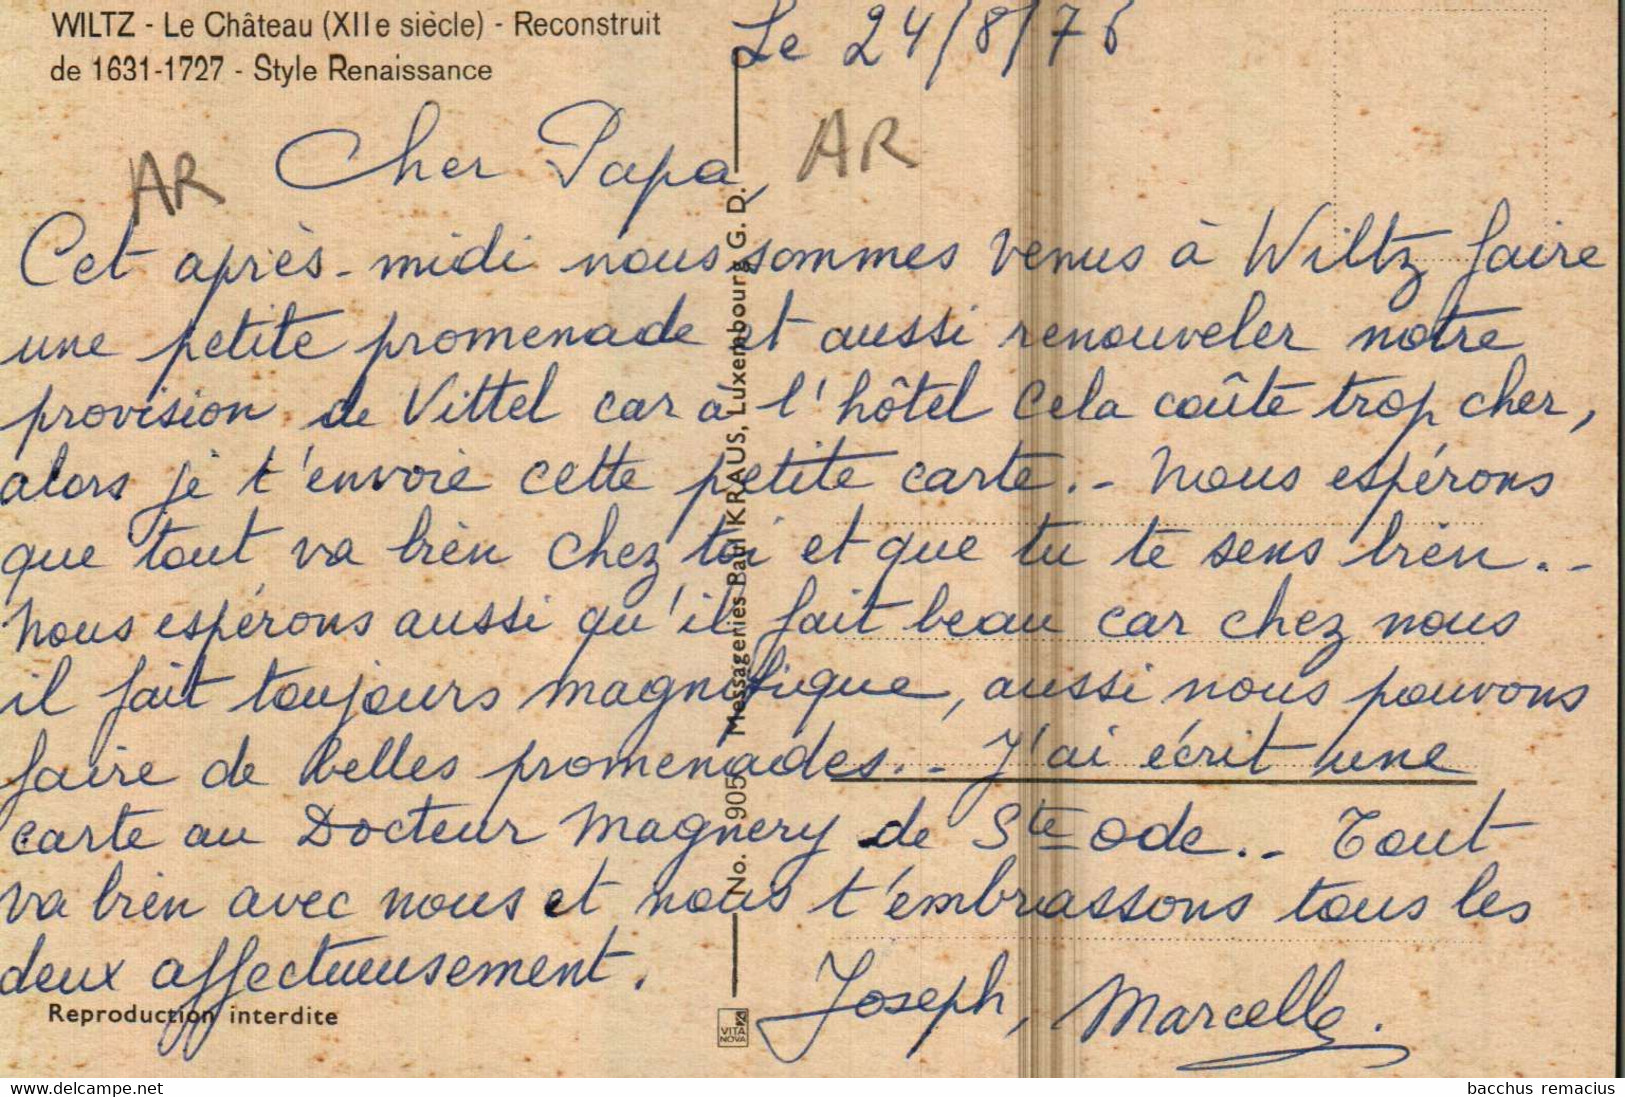 WILTZ - Le Château (XIIe siècle) - Reconstruit
de 1631-1727 - Style Renaissance
Le 24/8/76
AR
Cher Papa,
AR
Cet après-midi nous sommes venus à Wiltz faire
une petite promenade et aussi renouveler notre
provision de Vittel car à l'hôtel cela coûte trop cher,
alors je t'envoie cette petite carte.- Nous espérons
que tout va bien chez toi et que tu te sens bien.-
Nous espérons aussi qu'il fait beau car chez nous
il fait toujours magnifique, aussi nous pouvons
faire de belles promenades.- J'ai écrit une
carte au Docteur Magnery de Ste Ode.- Tout
va bien avec nous et nous t'embrassons tous les
deux affectueusement.
Joseph, Marcelle.
Reproduction interdite
No. 905 Messageries Paul KRAUS, Luxembourg G. D.
VITA
NOVA
www.delcampe.net
bacchus remacius